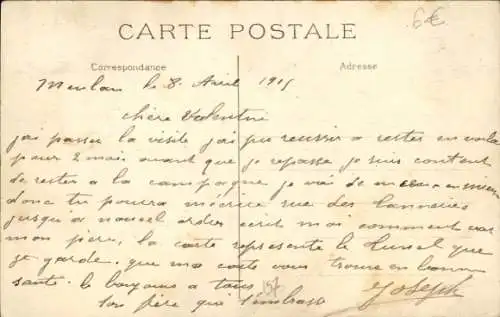 CARTE POSTALE
6€
Correspondance
Adresse
Meulan le 8. Avril 1915
chère Valentine
jai passer la visite jai pu reussir a rester en voila
pour 2 mois avant que je repasse je suis content
de rester a la campagne je vai de en mieu
donc tu pourra mécrire rue des Tanneries
jusqu'a nouvel ordre ecrit moi comment va
mon père, la carte represente le tunel que
je garde. que ma carte vous trouve en bonne
santé. le bonjour a tous
ton frère qui t'embrasse
Joseph